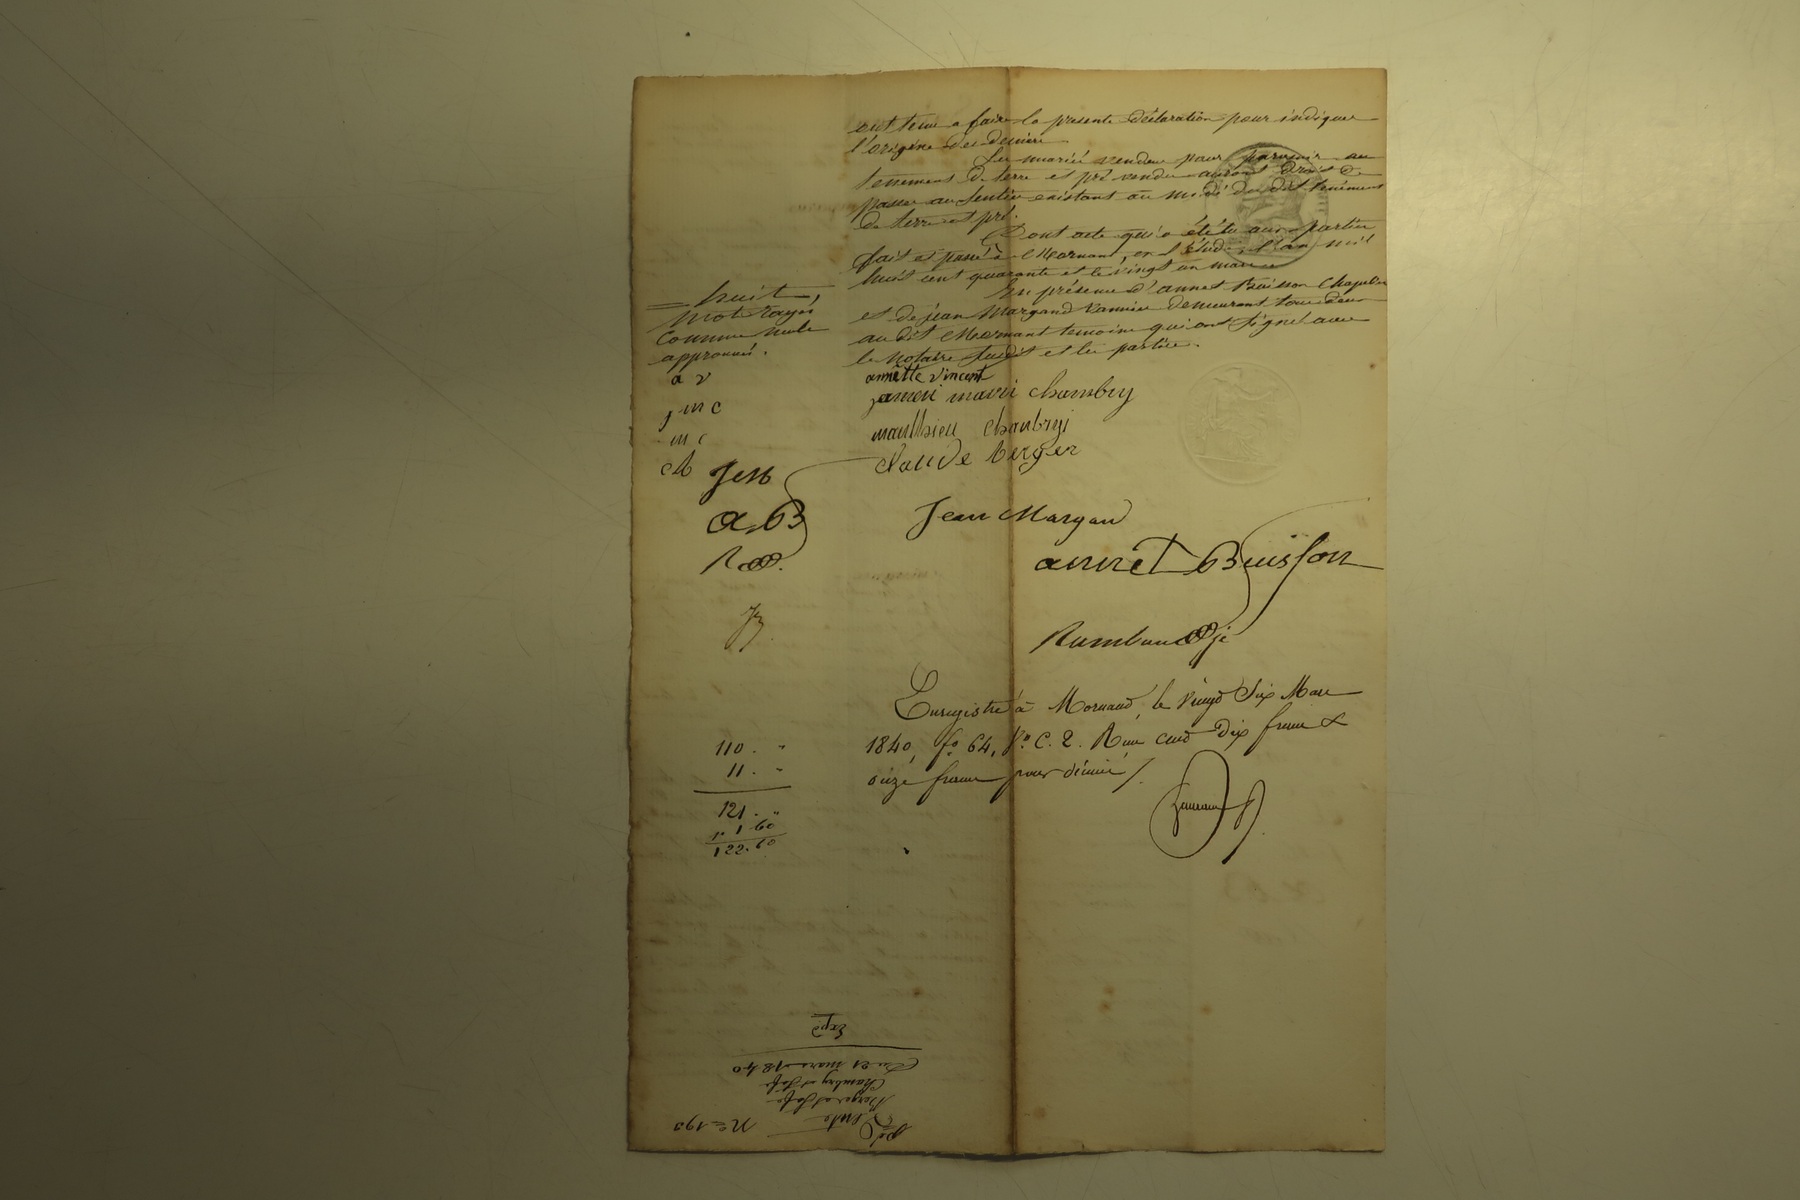 ont tenu a faire la presente déclaration pour indiquer
l'origine des deniers.
Les mariés vendeurs pour parvenir au
tenement de terre et pré vendu auront droit de
passer au sentier existant au midi du dit tenement
de terre et pré.
Dont acte qui a été lu aux parties
fait et passé à Mornant, en l'étude, l'an mil
huit cent quarante et le vingt un mars
En présence d'annet Buisson Chapelier
et de jean Margand vannier demeurant tous deux
au dit Mornant temoins qui ont signé avec
le notaire susdit et les parties.
huit,
mots rayés
comme nuls
approuvés.
a v
j m c
m c
cB
JeM
AB
annètte vincent
jameri marri chambry
matthieu chanbryi
claude berger
Jean Margan
annet Buisson
Enregistré à Mornand, le vingt Six Mars
1840, fo. 64, Vo. C. 2. Reçu cent dix francs &
onze francs pour décime /.
110. "
11. "
121. "
1 60
122.60
No 190
Vente
Berger et sa fe
Chambry et sa fe
Du 21 mars 1840
Expé